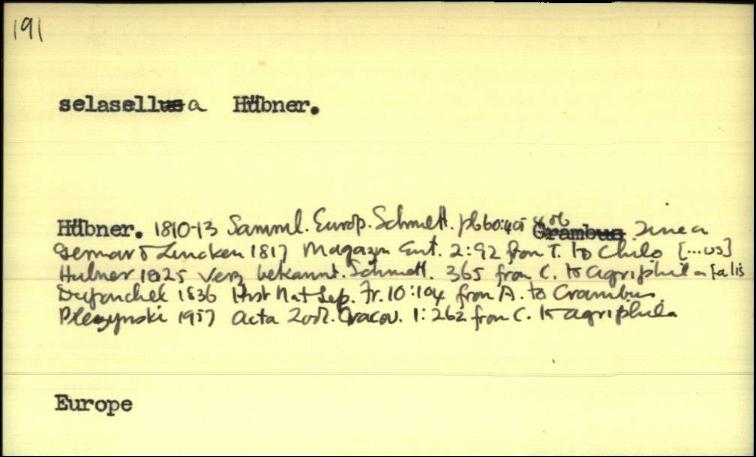 191
selasellusa Hübner.
Hübner. 1810-13 Samml. Europ. Schmett. pl 60:405 Crambus Tinea
Germar & Zincken 1817 Magazin Ent. 2:92 from T. to Chilo [...us]
Hubner 1825 Verz. bekannt. Schmett. 365 from C. to agriphila [alis
Duponchel 1836 Hist Nat Lep. Fr. 10:104 from A. to Crambus.
Bleszynski 1957 Acta Zool. Cracov. 1:262 from C. to agriphila
Europe